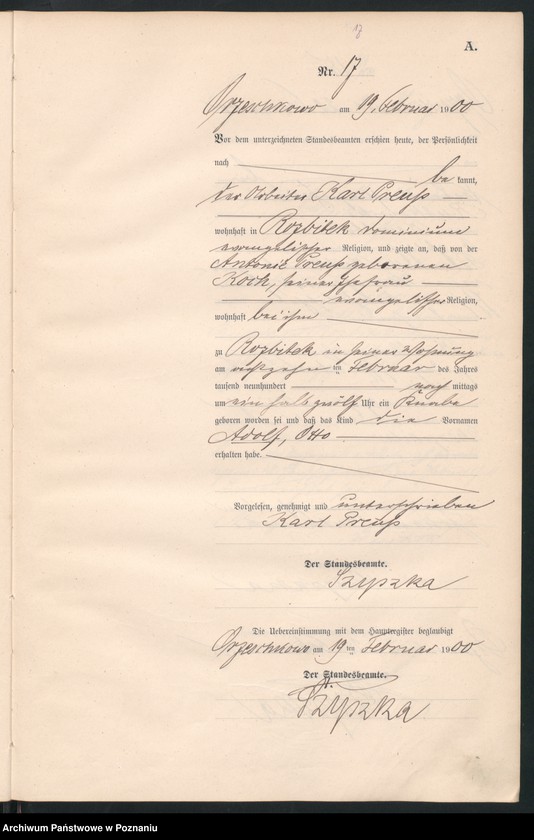 A.
Nr. 17
Orzeschkowo am 19. Februar 1900
Vor dem unterzeichneten Standesbeamten erschien heute, der Persönlichkeit
nach
be kannt,
der Arbeiter Karl Preuß
wohnhaft in Rozbitek Dominium
evangelischer Religion, und zeigte an, daß von der
Antonie Preuß geborenen
Koch, seiner Ehefrau
evangelischer Religion,
wohnhaft bei ihm
zu Rozbitek in seiner Wohnung
am achtzehn ten Februar des Jahres
tausend neunhundert nach mittags
um ein halb zwölf Uhr ein Knabe
geboren worden sei und daß das Kind die Vornamen
Adolf, Otto
erhalten habe.
Vorgelesen, genehmigt und unterschrieben
Karl Preuß
Der Standesbeamte.
Szyszka
Die Uebereinstimmung mit dem Hauptregister beglaubigt
Orzeschkowo am 19 ten Februar 1900
Der Standesbeamte.
Szyszka
Archiwum Państwowe w Poznaniu